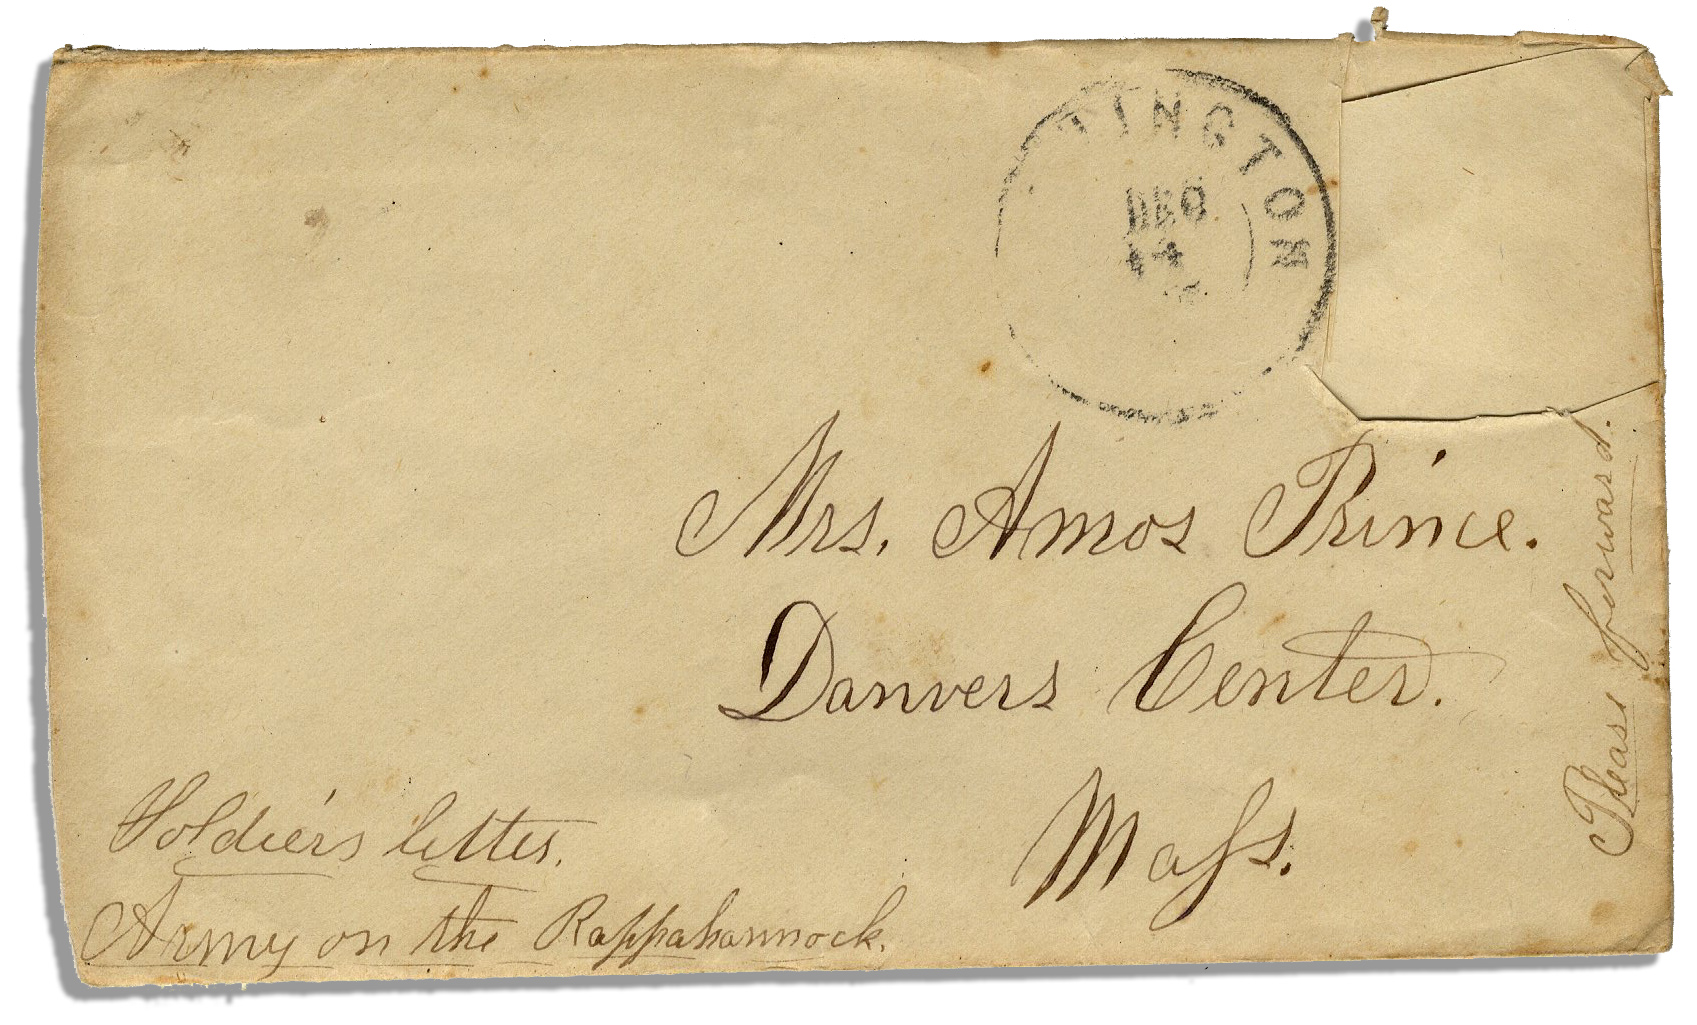 INGTON
DEC
14
Mrs. Amos Prince.
Danvers Center.
Maſs.
Please forward.
Soldier's letter.
Army on the Rappahannock.